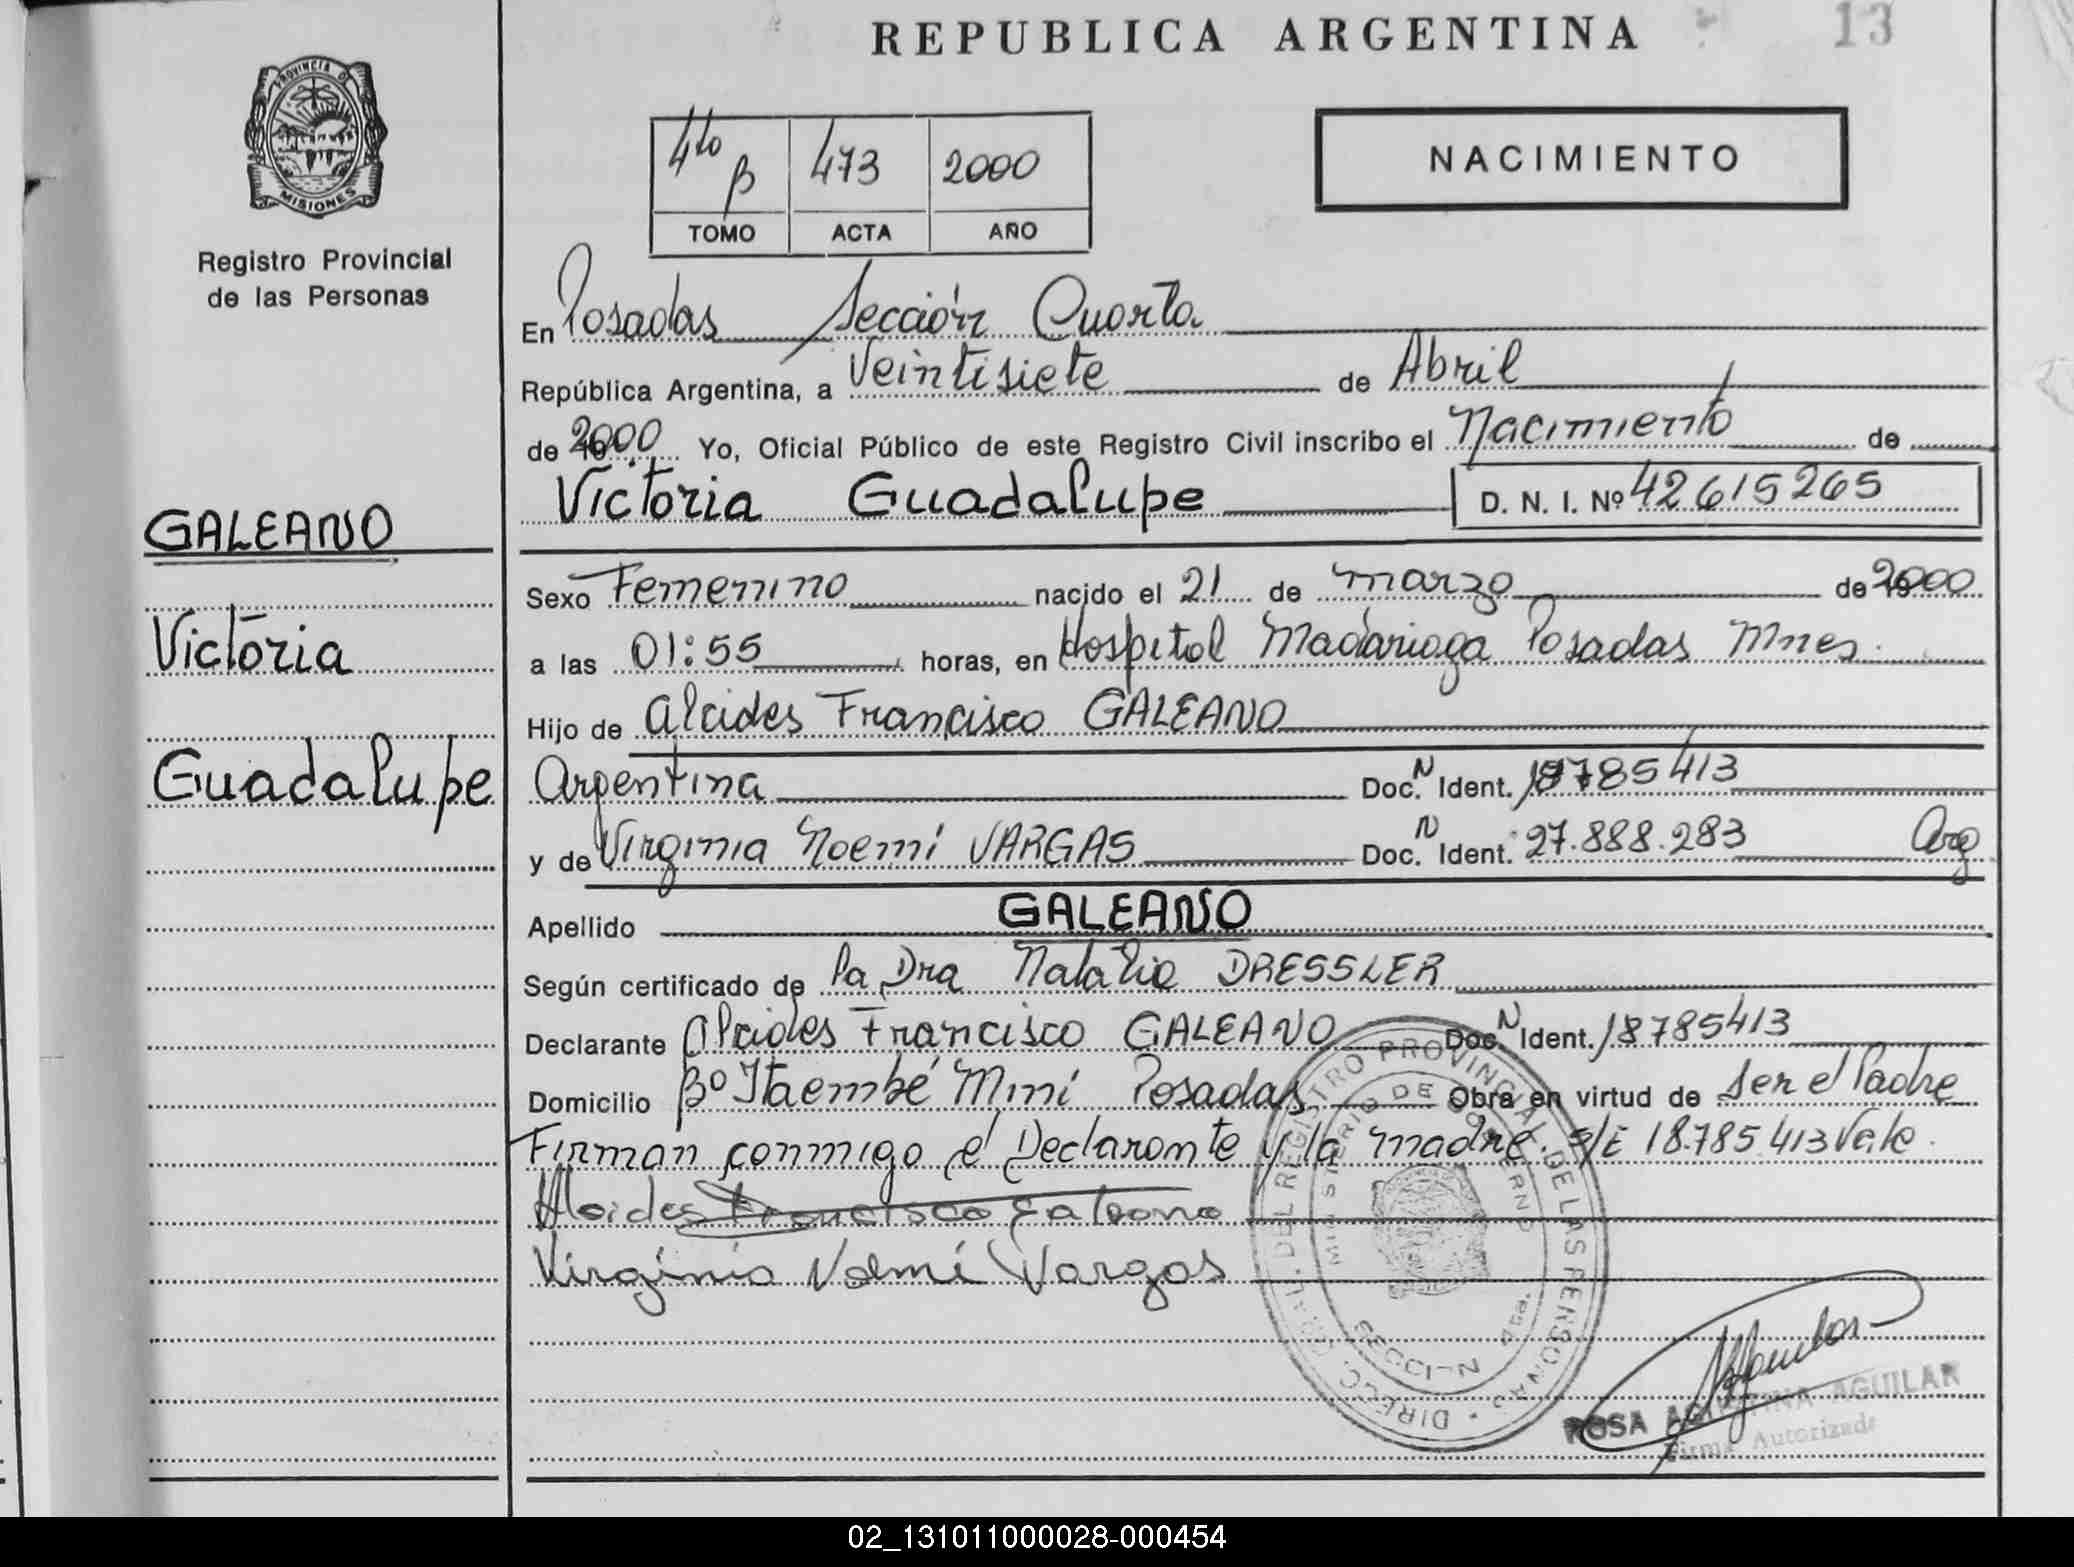 REPUBLICA ARGENTINA
13
PROVINCIA DE
MISIONES
Registro Provincial
de las Personas
4to B 473 2000
TOMO ACTA AÑO
NACIMIENTO
En Posadas Sección Cuarta
República Argentina, a Veintisiete de Abril
de 2000 Yo, Oficial Público de este Registro Civil inscribo el Nacimiento de
Victoria Guadalupe D. N. I. Nº 42615265
GALEANO
Victoria
Guadalupe
Sexo Femenino nacido el 21 de marzo de 2000
a las 01:55 horas, en Hospital Madariaga Posadas Mnes.
Hijo de Alcides Francisco GALEANO
Argentina Doc. N Ident. 18785413
y de Virginia Noemí VARGAS Doc. N Ident. 27.888.283 Arg
Apellido GALEANO
Según certificado de la Dra Natalia DRESSLER
Declarante Alcides Francisco GALEANO Doc. N Ident. 18785413
Domicilio Bº Itaembé Miní Posadas Obra en virtud de Ser el Padre
Firman conmigo el Declarante y la madre. S/E 18.785.413 Vale.
Alcides Francisco Galeano
Virginia Noemí Vargas
DIRECC. GRAL. DEL REGISTRO PROVINCIAL DE LAS PERSONAS
MINISTERIO DE GOBIERNO
SECCION 4ta.
ROSA AGUSTINA AGUILAR
Firma Autorizada
02_131011000028-000454